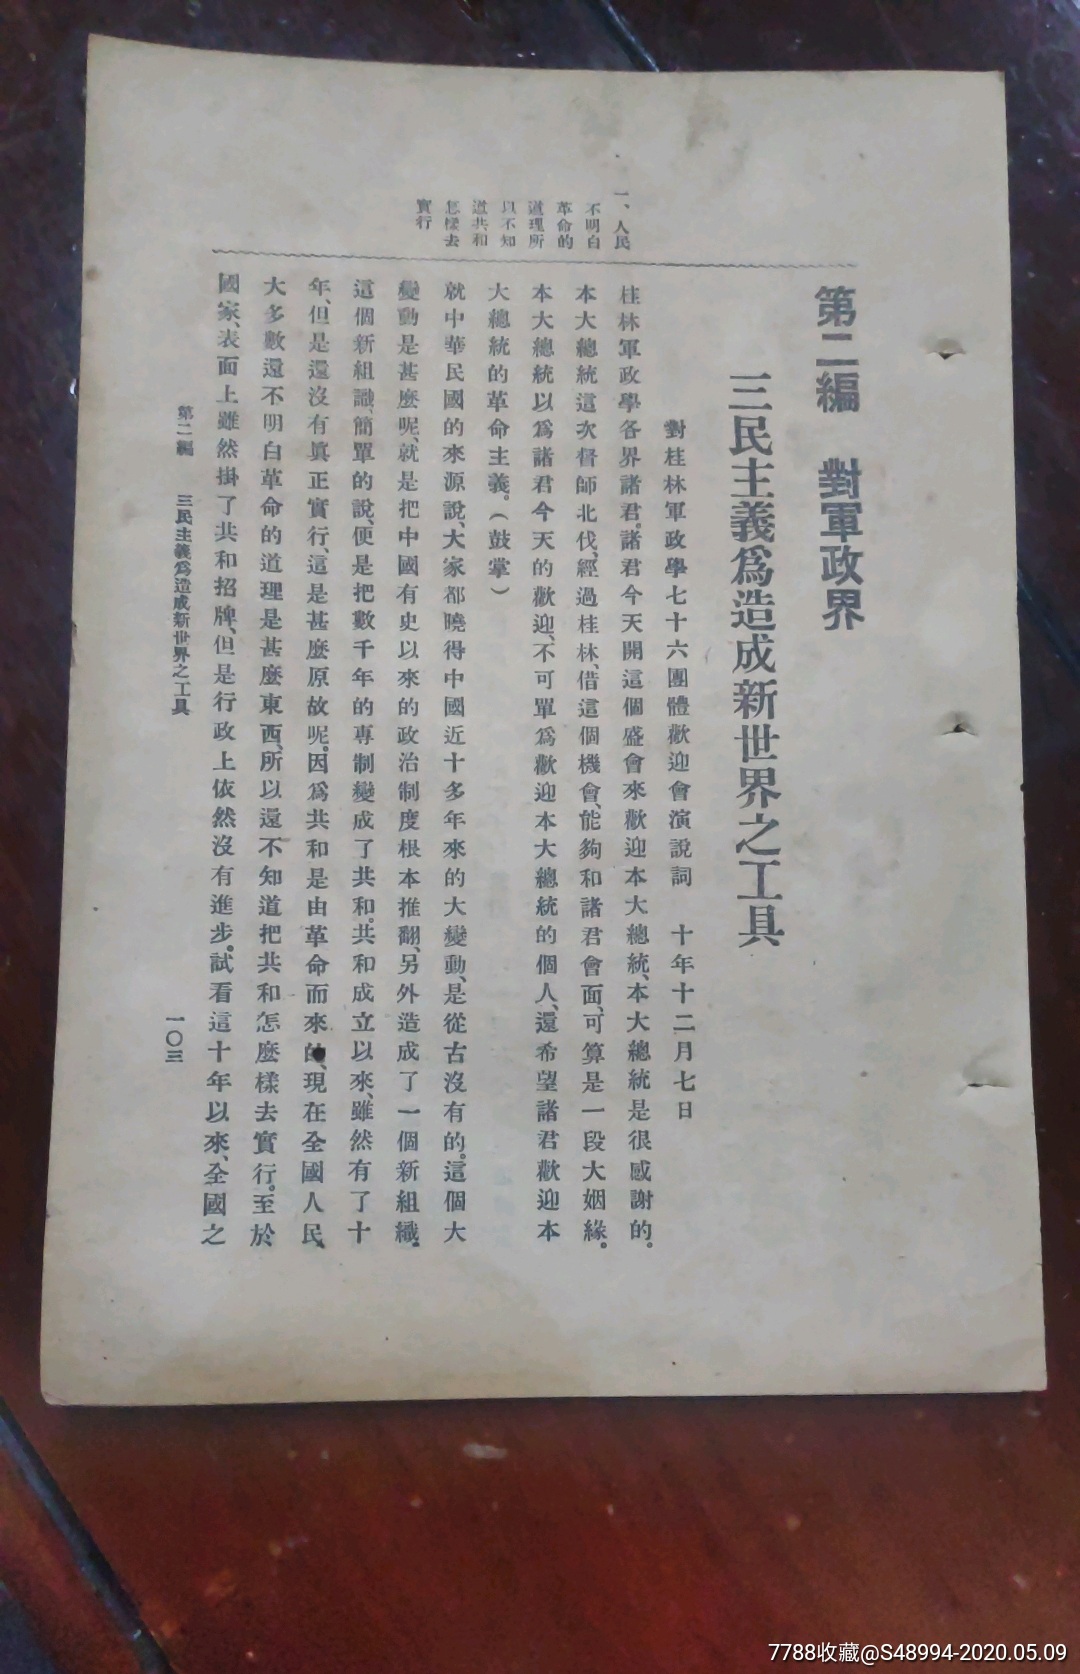 第二編　對軍政界
三民主義爲造成新世界之工具
對桂林軍政學七十六團體歡迎會演說詞　十年十二月七日
一、人民
不明白
革命的
道理所
以不知
道共和
怎樣去
實行
桂林軍政學各界諸君。諸君今天開這個盛會來歡迎本大總統、本大總統是很感謝的。
本大總統這次督師北伐、經過桂林、借這個機會、能夠和諸君會面、可算是一段大姻緣。
本大總統以爲諸君今天的歡迎、不可單爲歡迎本大總統的個人、還希望諸君歡迎本
大總統的革命主義。（鼓掌）
就中華民國的來源說、大家都曉得中國近十多年來的大變動、是從古沒有的。這個大
變動是甚麼呢、就是把中國有史以來的政治制度根本推翻、另外造成了一個新組織。
這個新組識、簡單的說、便是把數千年的專制變成了共和。共和成立以來、雖然有了十
年、但是還沒有眞正實行、這是甚麼原故呢。因爲共和是由革命而來的、現在全國人民、
大多數還不明白革命的道理是甚麼東西、所以還不知道把共和怎麼樣去實行。至於
國家、表面上雖然掛了共和招牌、但是行政上依然沒有進步。試看這十年以來、全國之
第二編　三民主義爲造成新世界之工具　一〇三
7788收藏@S48994-2020.05.09